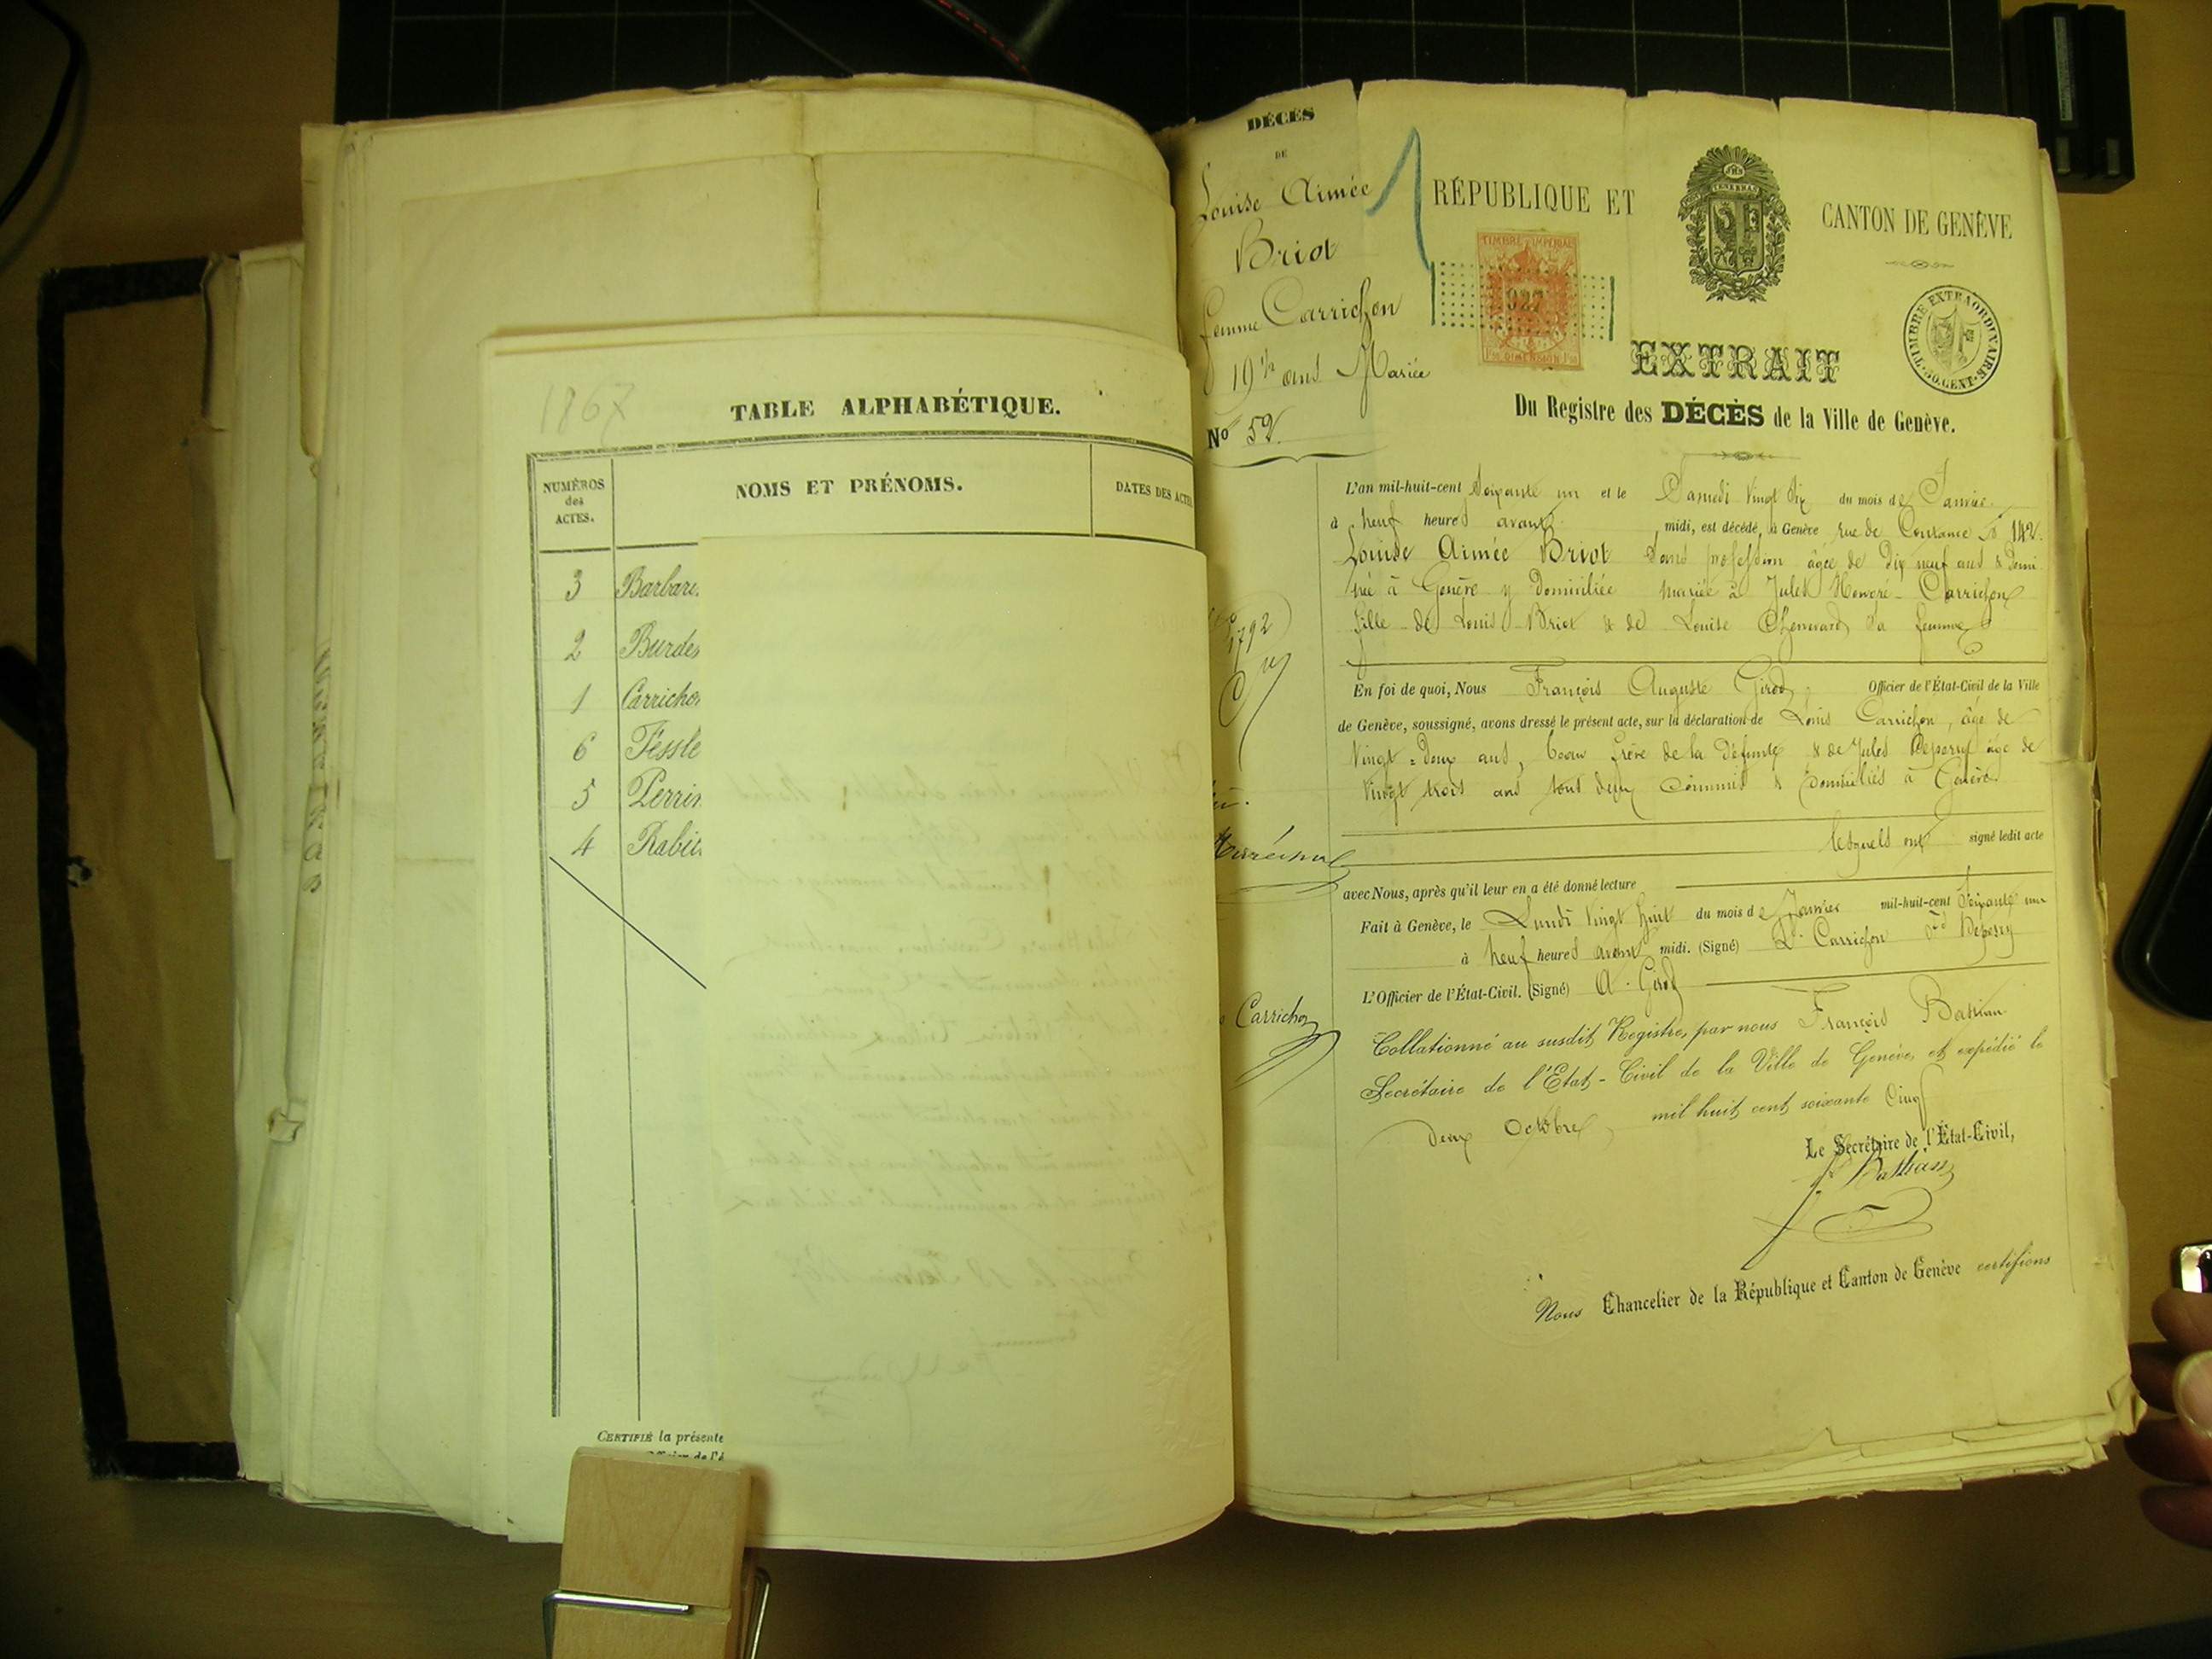 1867
TABLE ALPHABÉTIQUE.
NUMÉROS
des
ACTES.
NOMS ET PRÉNOMS.
DATES DES ACTES
3 Barbare
2 Burdes
1 Carrichon
6 Tessle
5 Perrin
4
CERTIFIÉ la présente
DÉCÈS
DE
Louise Aimée
Briot
femme Carrichon
19 ½ ans Mariée
No 52
1792
Carrichon
RÉPUBLIQUE ET
CANTON DE GENÈVE
TIMBRE IMPÉRIAL
927
DIMENSION
TIMBRE EXTRAORDINAIRE
30. CENT.
EXTRAIT
Du Registre des DÉCÈS de la Ville de Genève.
L'an mil-huit-cent Soixante un et le Samedi vingt Six du mois de Janvier
à neuf heures avant midi, est décédé, à Genève rue de Coutance No 142.
Louise Aimée Briot Sans profession âgée de Dix neuf ans & Demi
née à Genève y Domiciliée mariée à Jules Honoré Carrichon
fille de Louis Briot & de Louise Chenevard Sa femme
En foi de quoi, Nous François Auguste Girod, Officier de l'État-Civil de la Ville
de Genève, soussigné, avons dressé le présent acte, sur la déclaration de Louis Carrichon, âgé de
Vingt-Deux ans, beau frère de la Défunte & de Jules âgé de
Vingt trois ans tous deux Commis & Domiciliés à Genève
lesquels ont signé ledit acte
avec Nous, après qu'il leur en a été donné lecture
Fait à Genève, le Lundi vingt huit du mois de Janvier mil-huit-cent Soixante un
à neuf heures avant midi. (Signé) Ls Carrichon
L'Officier de l'État-Civil. (Signé) A. Girod
Collationné au susdit Registre, par nous François Bastian
Secrétaire de l'Etat-Civil de la Ville de Genève et expédié le
deux Octobre, mil huit cent soixante Cinq
Le Secrétaire de l'État-Civil,
F. Bastian
Nous Chancelier de la République et Canton de Genève certifions